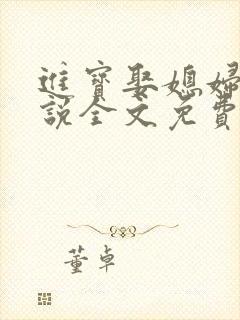 進寳娶媳婦
說全文免費
董卓